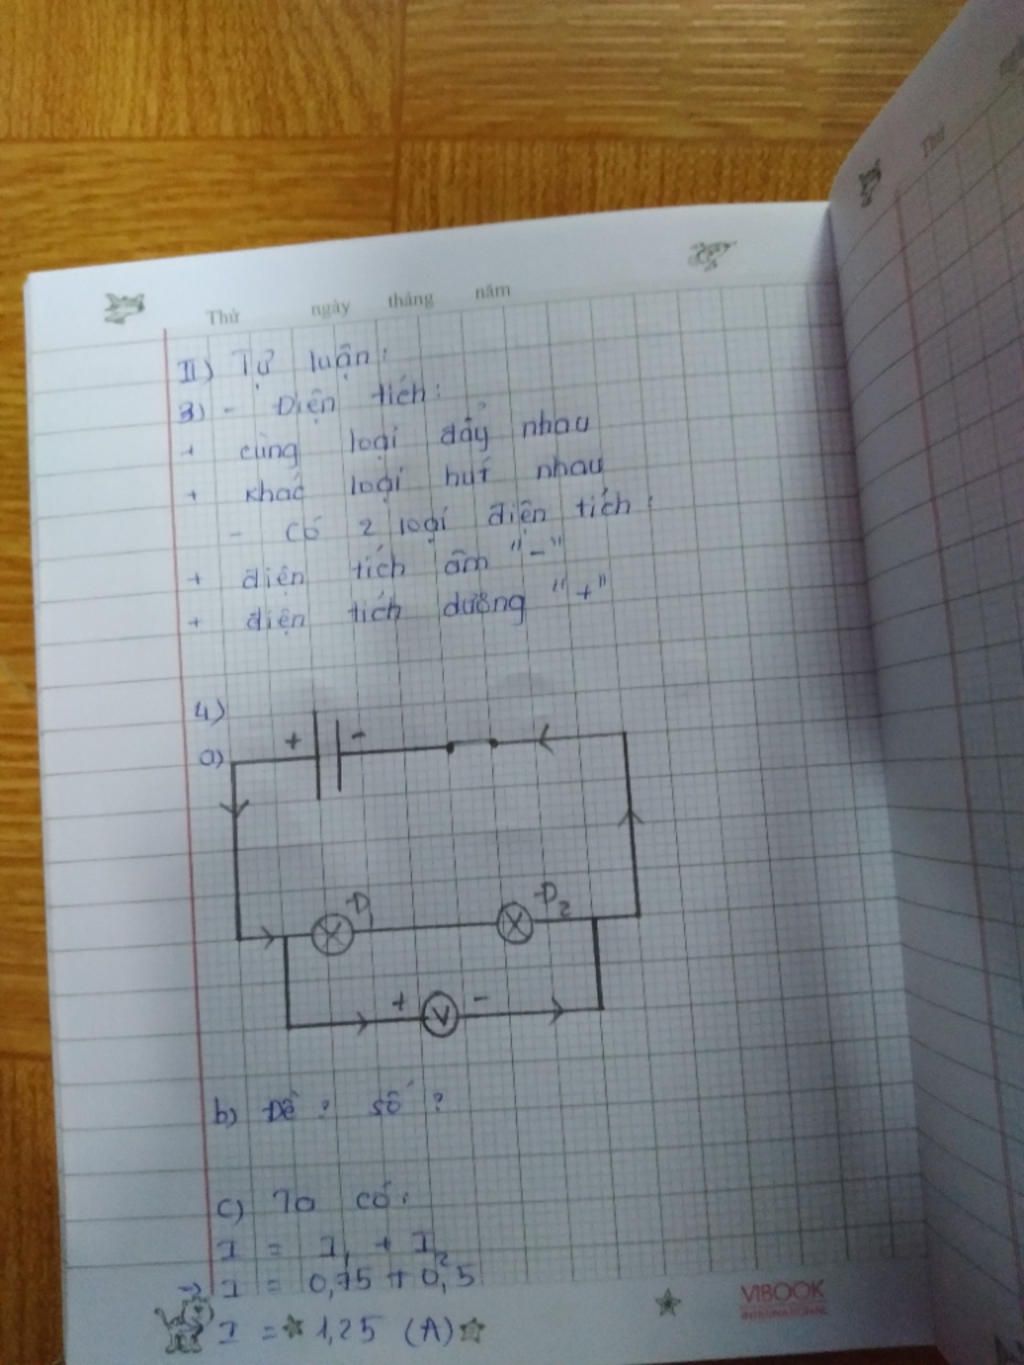 Thứ ngày tháng năm
Thứ
II) Tự luận:
3) - Điện tích:
+ cùng loại đẩy nhau
+ khác loại hút nhau
- Có 2 loại điện tích:
+ điện tích âm "-"
+ điện tích dương "+"
4)
a)
+ -
Đ1 Đ2
+ V -
b) Đề ? số ?
c) Ta có:
I = I1 + I2
→ I = 0,75 + 0,5
I = 1,25 (A)
VIBOOK
INTERNATIONAL